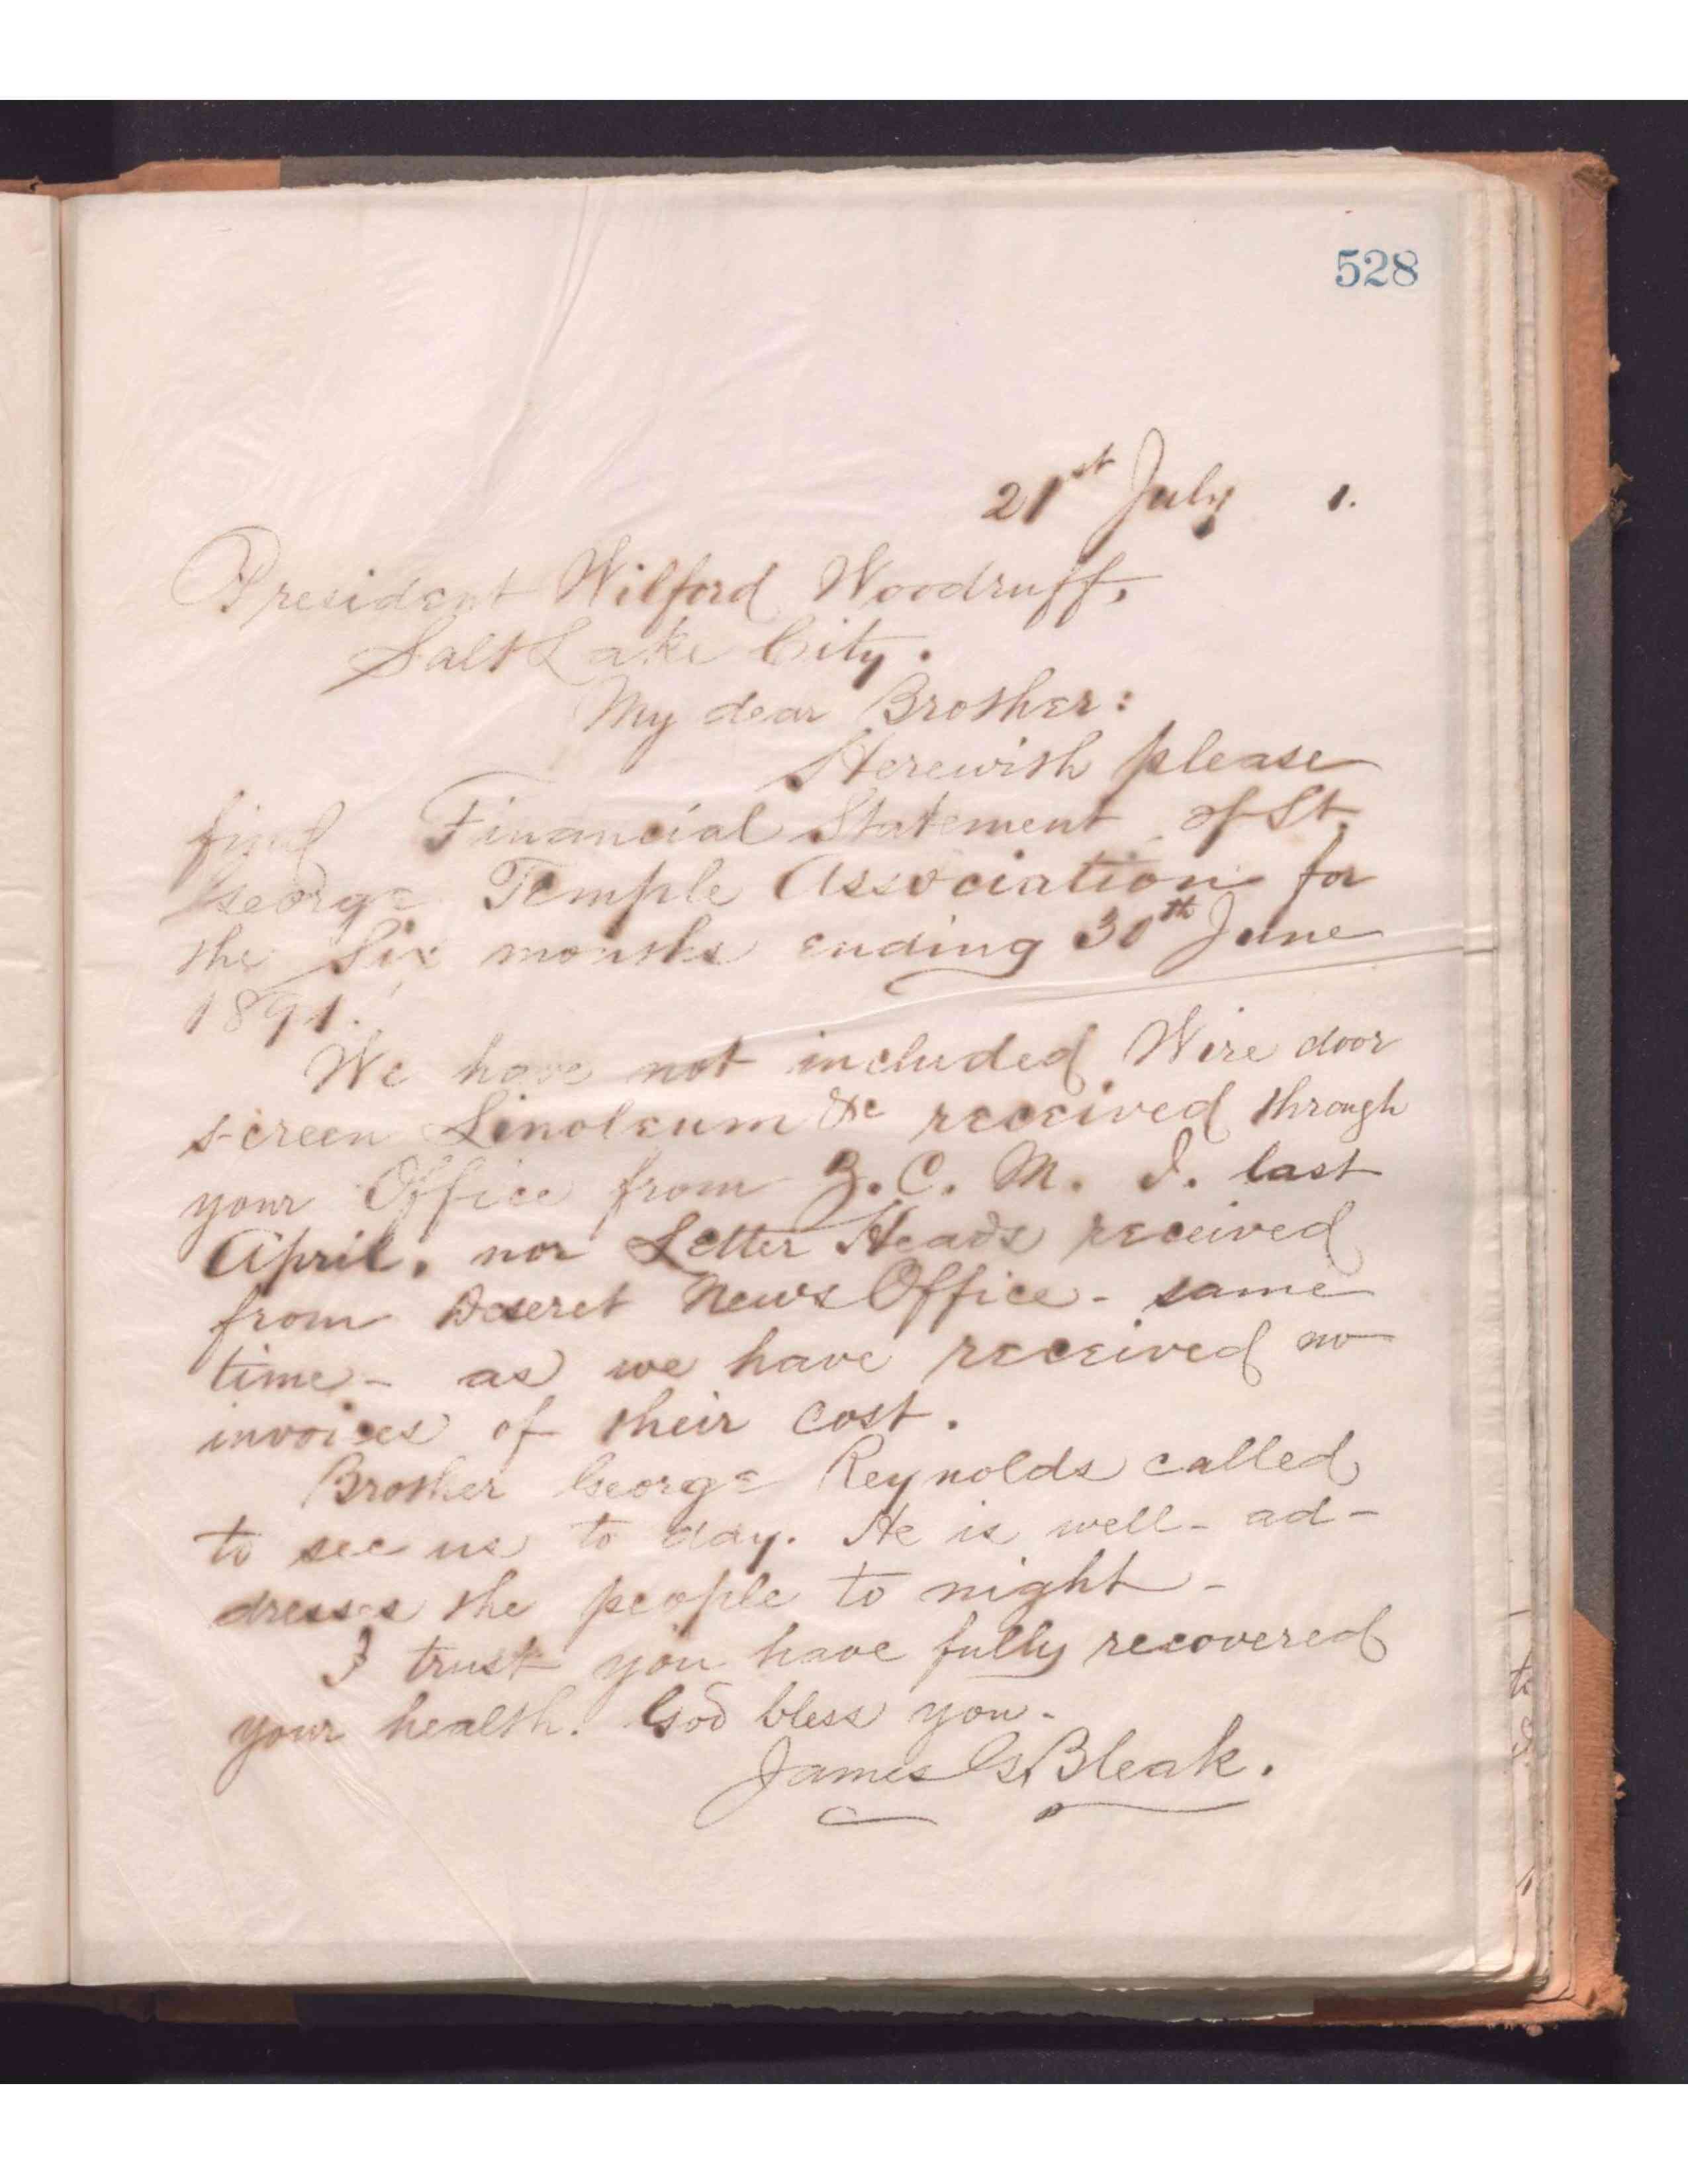 528
21st July 1.
President Wilford Woodruff,
Salt Lake City.
My dear Brother:
Herewith please
find Financial Statement of St.
George Temple Association for
the Six months ending 30th June
1891.
We have not included Wire door
screen Linoleum &c received through
your Office from Z. C. M. I. last
April, nor Letter Heads received
from Deseret News Office - same
time - as we have received no
invoices of their cost.
Brother George Reynolds called
to see us to day. He is well - ad-
dresses the people to night -
I trust you have fully recovered
your health. God bless you -
James G. Bleak.